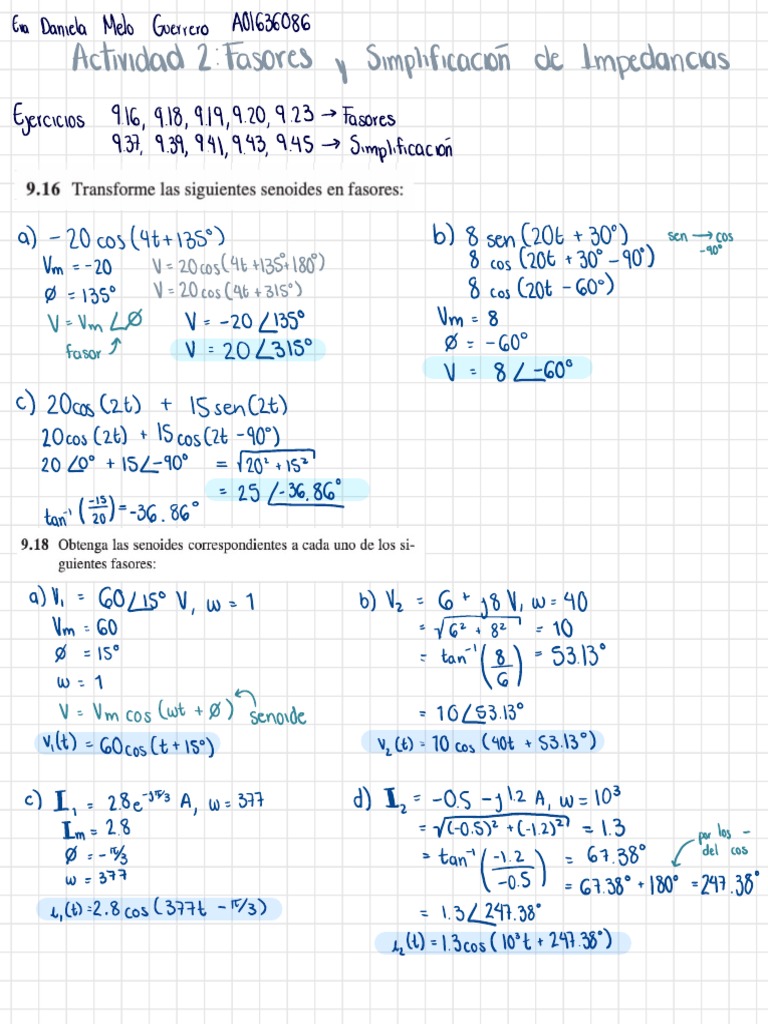 Eva Daniela Melo Guerrero A01636086
Actividad 2: Fasores y Simplificación de Impedancias
Ejercicios 9.16, 9.18, 9.19, 9.20, 9.23 → Fasores
9.37, 9.39, 9.41, 9.43, 9.45 → Simplificación
9.16 Transforme las siguientes senoides en fasores:
a) -20 cos (4t+135°)
Vm = -20 V = 20 cos (4t +135°+180°)
Ø = 135° V = 20 cos (4t + 315°)
V = Vm ∠Ø V = -20 ∠135°
fasor ↑ V = 20 ∠315°
b) 8 sen (20t + 30°) sen → cos
-90°
8 cos (20t + 30° - 90°)
8 cos (20t - 60°)
Vm = 8
Ø = -60°
V = 8 ∠-60°
c) 20cos (2t) + 15 sen (2t)
20 cos (2t) + 15 cos (2t - 90°)
20 ∠0° + 15∠-90° = √20² + 15²
= 25 ∠-36.86°
tan⁻¹ (-15/20) = -36.86°
9.18 Obtenga las senoides correspondientes a cada uno de los si-
guientes fasores:
a) V₁ = 60∠15° V, w = 1
Vm = 60
Ø = 15°
w = 1
V = Vm cos (wt + Ø) senoide
v₁(t) = 60cos (t + 15°)
b) V₂ = 6 + j8 V, w = 40
= √6² + 8² = 10
= tan⁻¹ (8/6) = 53.13°
= 10∠53.13°
v₂ (t) = 10 cos (40t + 53.13°)
c) I₁ = 2.8e^-jπ/3 A, w = 377
Im = 2.8
Ø = -π/3
w = 377
i₁(t) = 2.8 cos (377t - π/3)
d) I₂ = -0.5 - j1.2 A, w = 10³
= √(-0.5)² + (-1.2)² = 1.3
= tan⁻¹ (-1.2/-0.5) = 67.38°
por los -
del cos
= 67.38° + 180° = 247.38°
= 1.3∠247.38°
i₂ (t) = 1.3cos (10³t + 247.38°)